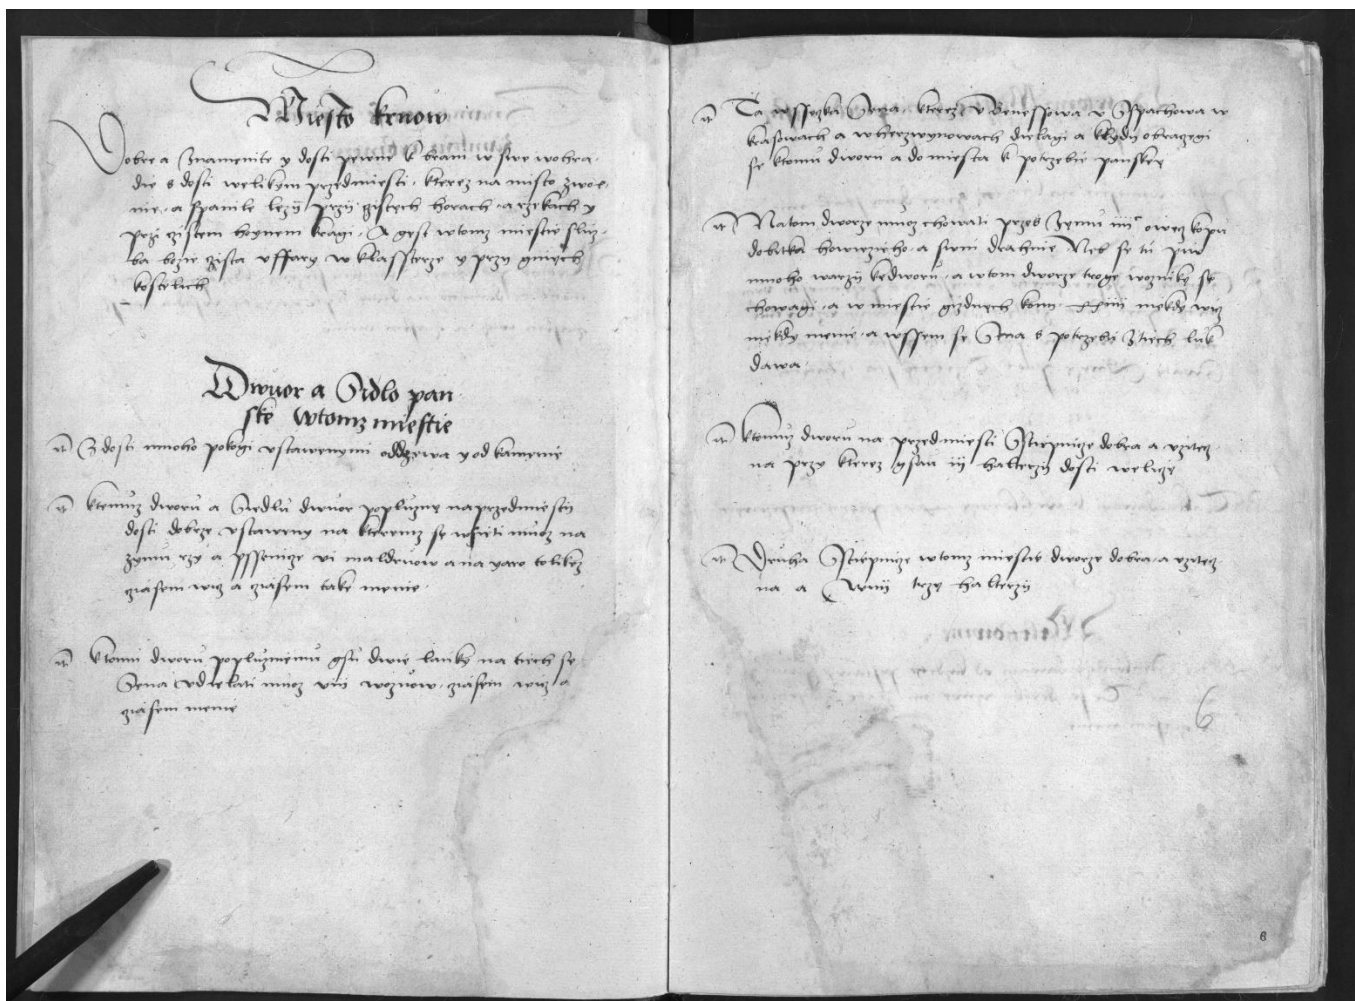 Miesto krnow
Dobre a Znamenite y dosti pewne k brani w swe wohra-
die s dosti welikym przedmiesti, kterez na misto zwol-
nie, a spanile lezy przy zistych horach, a rzekach y
przi zistem hognem kragi. A gest wtomz miestie sluz-
ba bozie zista v ffary w klassterze y przy ginych
kostelich
Dwuor a Sidlo pan-
ske wtomz miestie
It Z dosti mnoho pokogi vstawenymi od drzewa y od kamenie
It ktemuz dworu a Siedlu dwuor popluzny naprzedmiesti
dosti dobrze vstaweny na kteremz se wsieti muoz na
zymu rzy a pssenicze vi maldruow a na yaro tolikez
ziasem wiz a ziasem take menie.
It ktomu dworu popluzniemu gsu dwie luky na tiech se
Sena vdielati muoz viii wozuow, ziasem wiz a
ziasem menie
It Ta wssezka Sena kterez v Benessowa v Sspachowa w
krasowach a w herzwynowach dielagi a klydy obrazegi
se ktomu dworu a do miesta k potrzebie panske
It Natom dworze muoz chowati przes Zymu iiiic owez kopu
dobitka howieziho, a swini drahnie Neb se tu piw
mnoho warzy kedworu, a wtom dworze troge woznike se
chowagi, a w miestie gizdnych koni xxiiii niekdy wiz
niekdy menie, a wssem se Sena s potrzebu ztiech luk
dawa.
It ktomuz dworu na przedmiesti Sstiepnicze dobra a vzitecz-
na przy kterez gsau iii halterzy dosti welicze
It Druha Sstiepnicze wtomz miestie dworze dobra, a vzitecz-
na a Wnij trzy halterzy
6
6